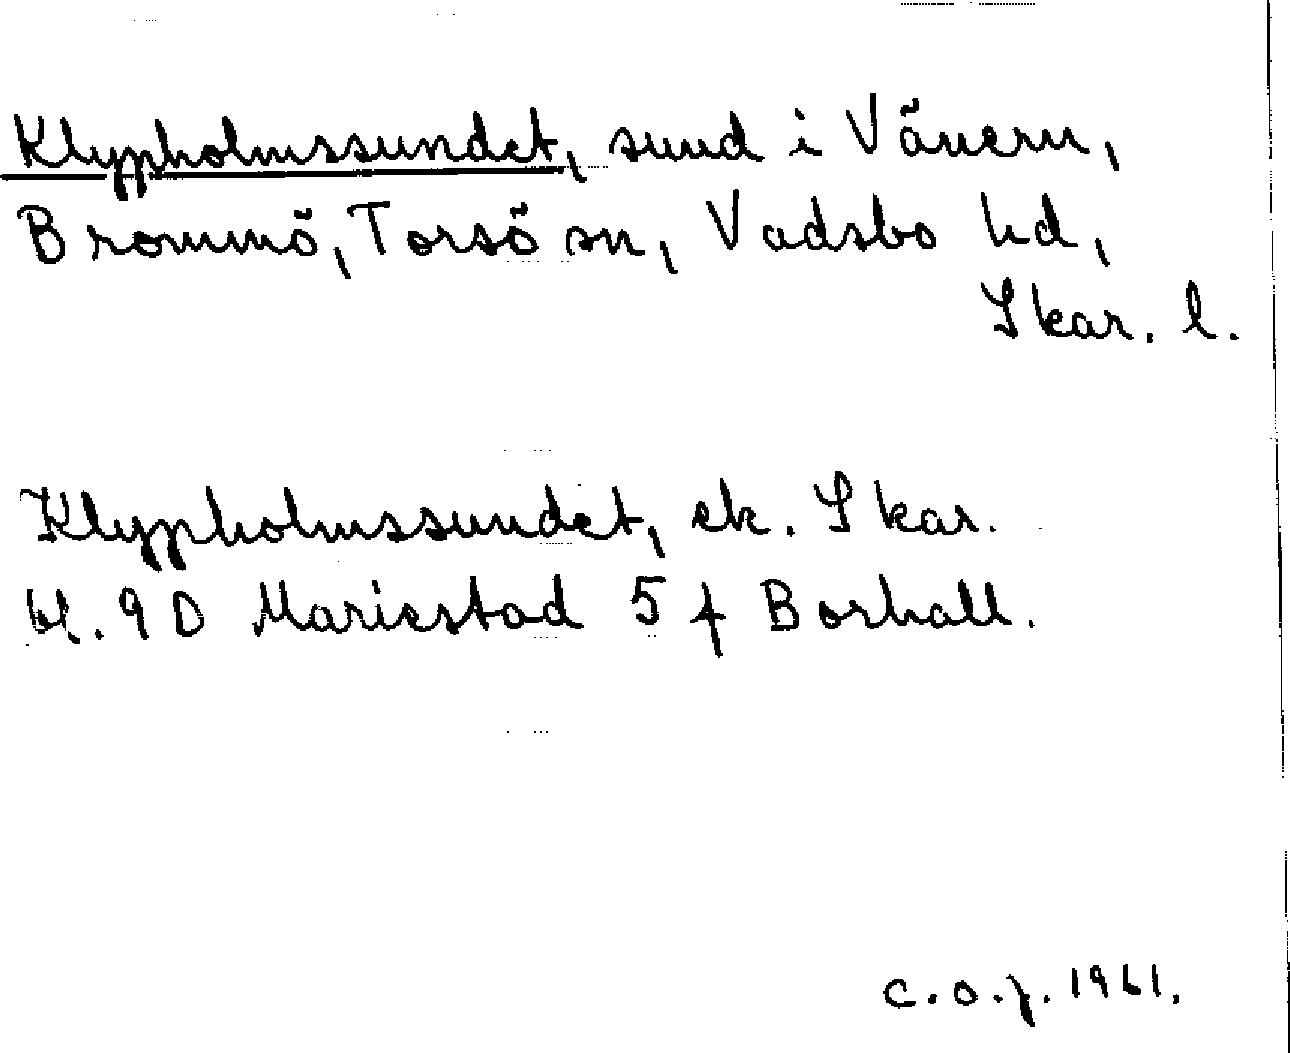 Klypholmssundet, sund i Vänern,
Brommö, Torsö sn, Vadsbo hd,
Skar. l.
Klypholmssundet, ek. Skar.
bl. 9 D Mariestad 5 f Borhall.
C.O.J. 1961.